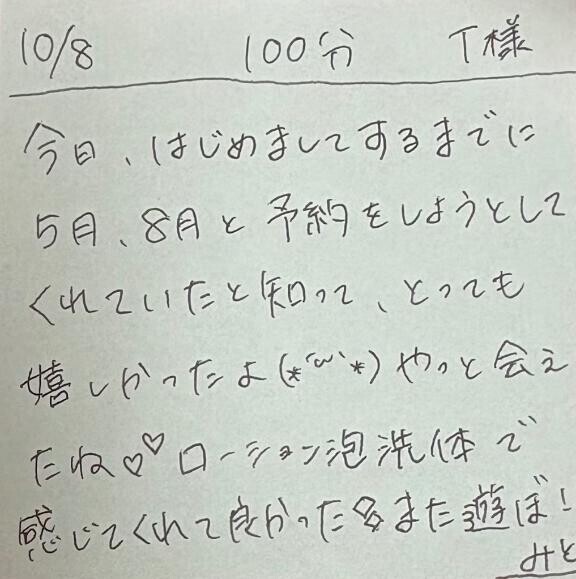 10/8 100分 T様
今日、はじめましてするまでに
5月、8月と予約をしようとして
くれていたと知って、とっても
嬉しかったよ(*´ω`*)やっと会え
たね♡♡ローション泡洗体で
感じてくれて良かった♋また遊ぼ!
みと